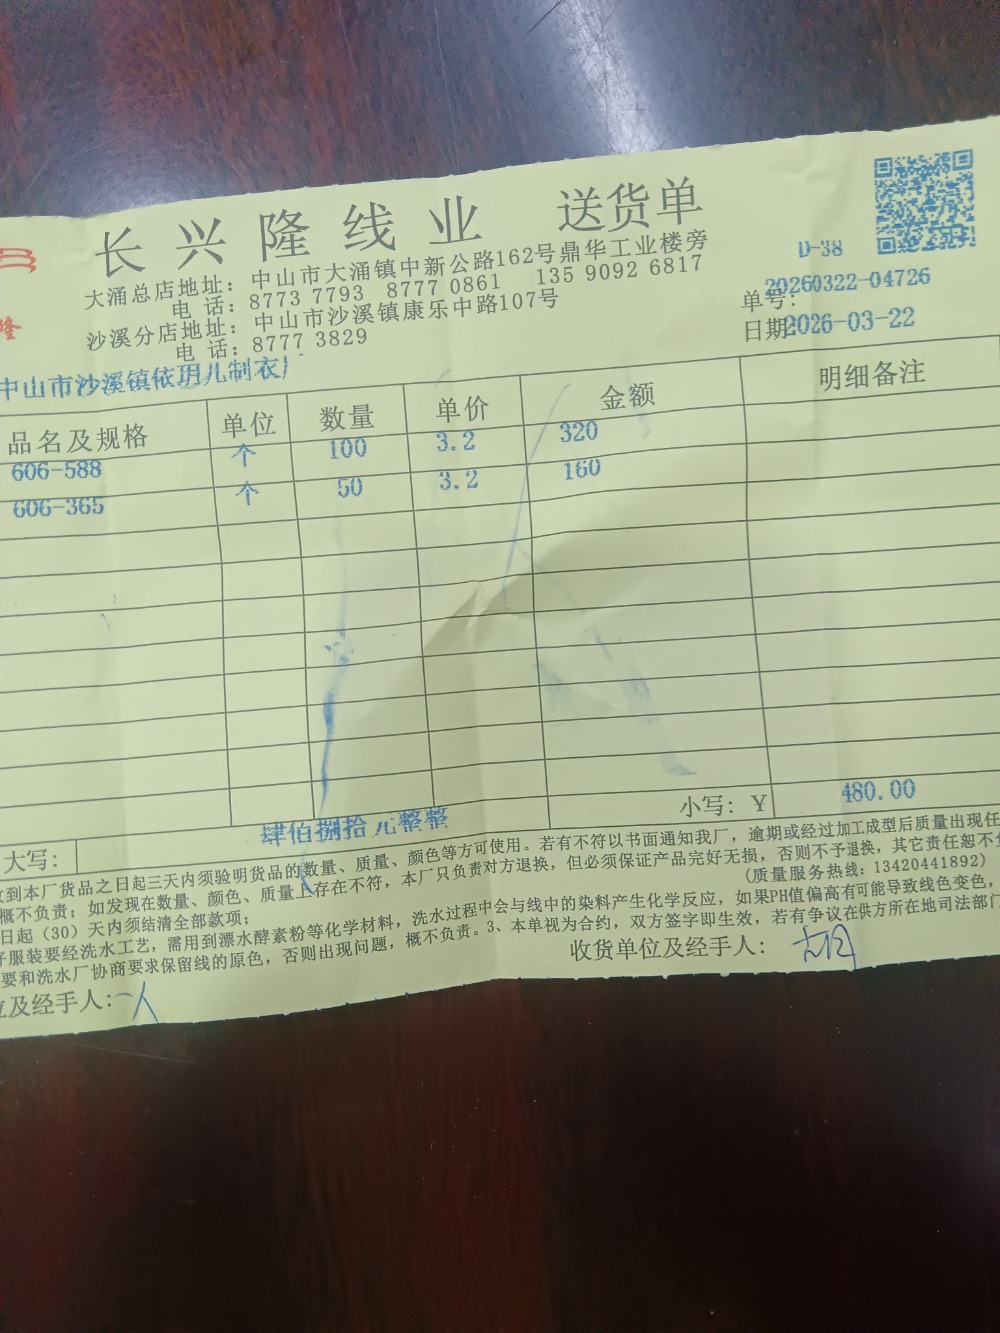 长兴隆线业 送货单
隆
D-38
大涌总店地址：中山市大涌镇中新公路162号鼎华工业楼旁
电 话：8773 7793 8777 0861 135 9092 6817
沙溪分店地址：中山市沙溪镇康乐中路107号
电 话：8777 3829
单号：20260322-04726
日期2026-03-22
中山市沙溪镇依玥儿制衣厂
品名及规格 单位 数量 单价 金额 明细备注
606-588 个 100 3.2 320
606-365 个 50 3.2 160
大写： 肆佰捌拾元整整 小写：￥ 480.00
收到本厂货品之日起三天内须验明货品的数量、质量、颜色等方可使用。若有不符以书面通知我厂，逾期或经过加工成型后质量出现任
概不负责；如发现在数量、颜色、质量上存在不符，本厂只负责对方退换，但必须保证产品完好无损，否则不予退换，其它责任恕不负
日起（30）天内须结清全部款项； (质量服务热线：13420441892)
服装要经洗水工艺，需用到漂水酵素粉等化学材料，洗水过程中会与线中的染料产生化学反应，如果PH值偏高有可能导致线色变色，
要和洗水厂协商要求保留线的原色，否则出现问题，概不负责。3、本单视为合约，双方签字即生效，若有争议在供方所在地司法部门
位及经手人： 收货单位及经手人：